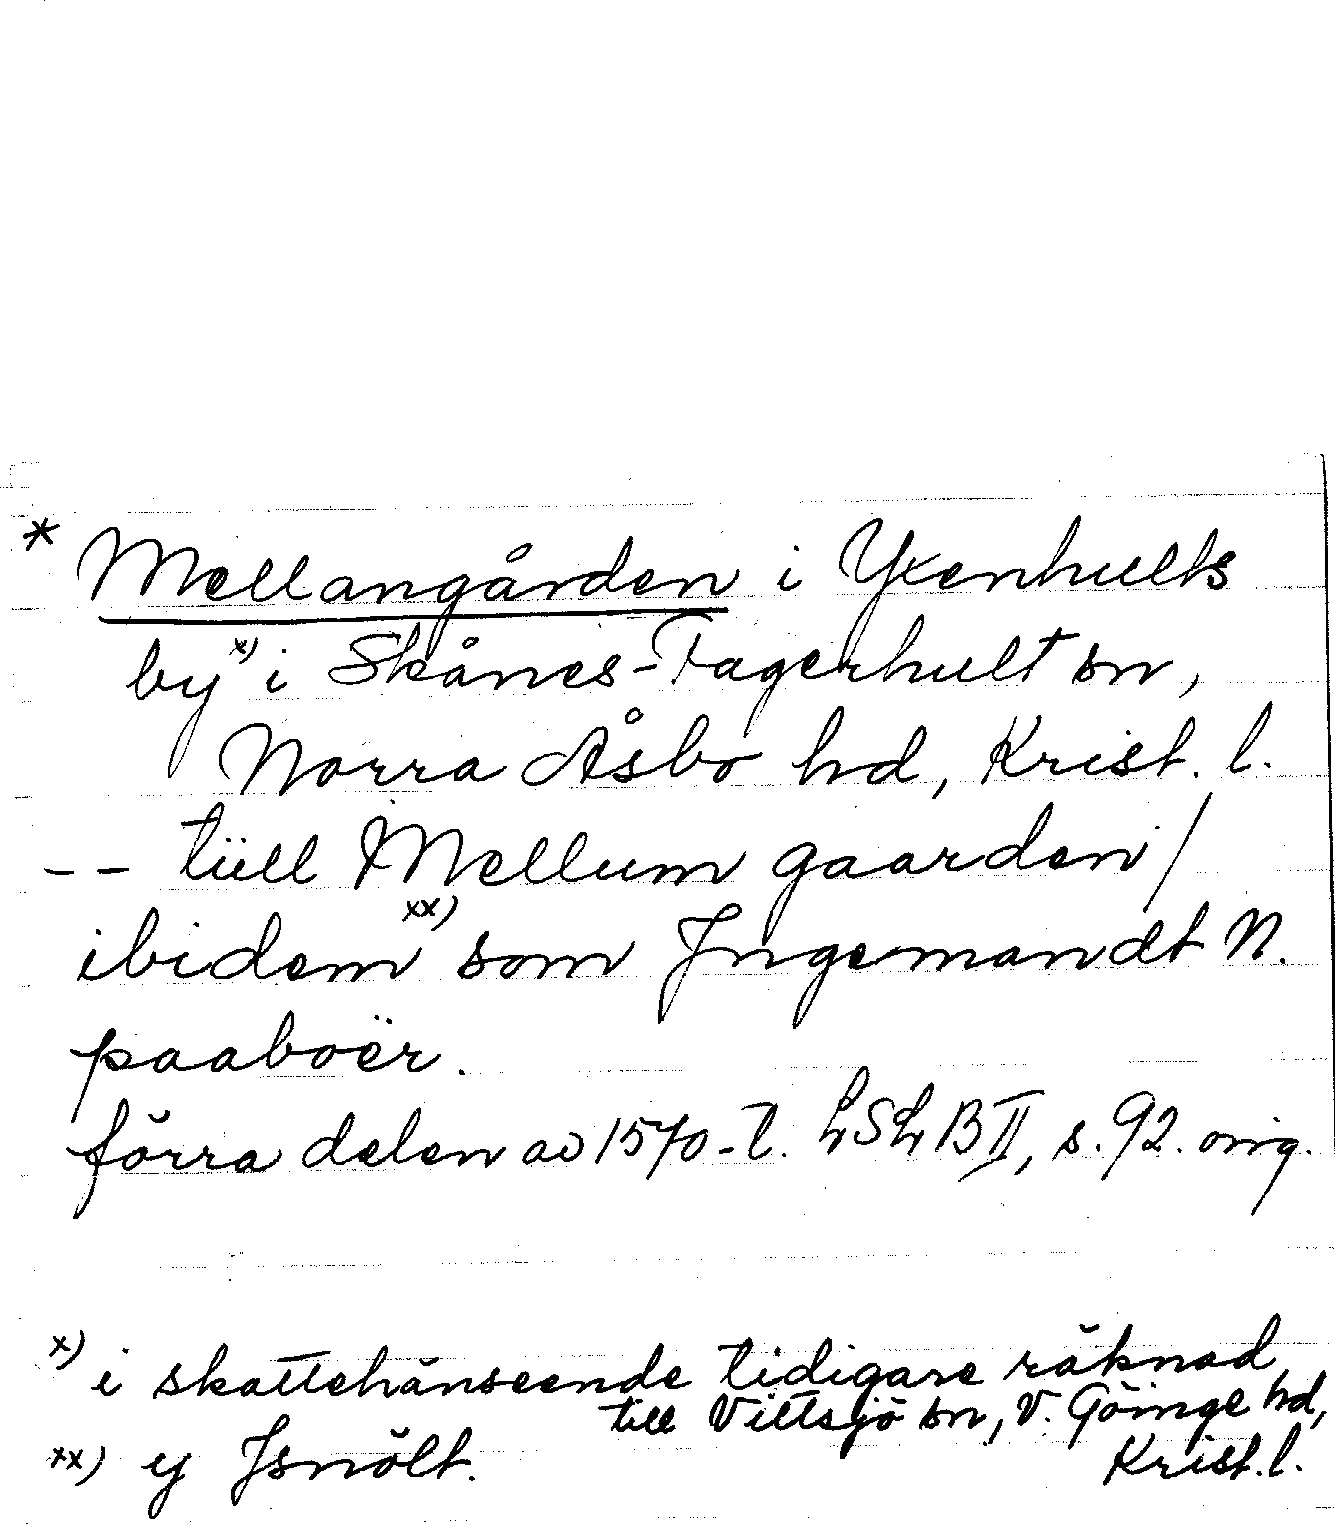 * Mellangården i Yxenhults
by x) i Skånes-Fagerhult sn,
Norra Åsbo hd, Krist. l.
-- tüll Mellum gaarden /
ibidem xx) som Jngemandt N.
paaboër.
förra delen av 1570-t. LSLB II, s. 92. orig.
x) i skattehänseende tidigare räknad
till Vittsjö sn, V. Göinge hd,
Krist. l.
xx) ej Jsnölt.